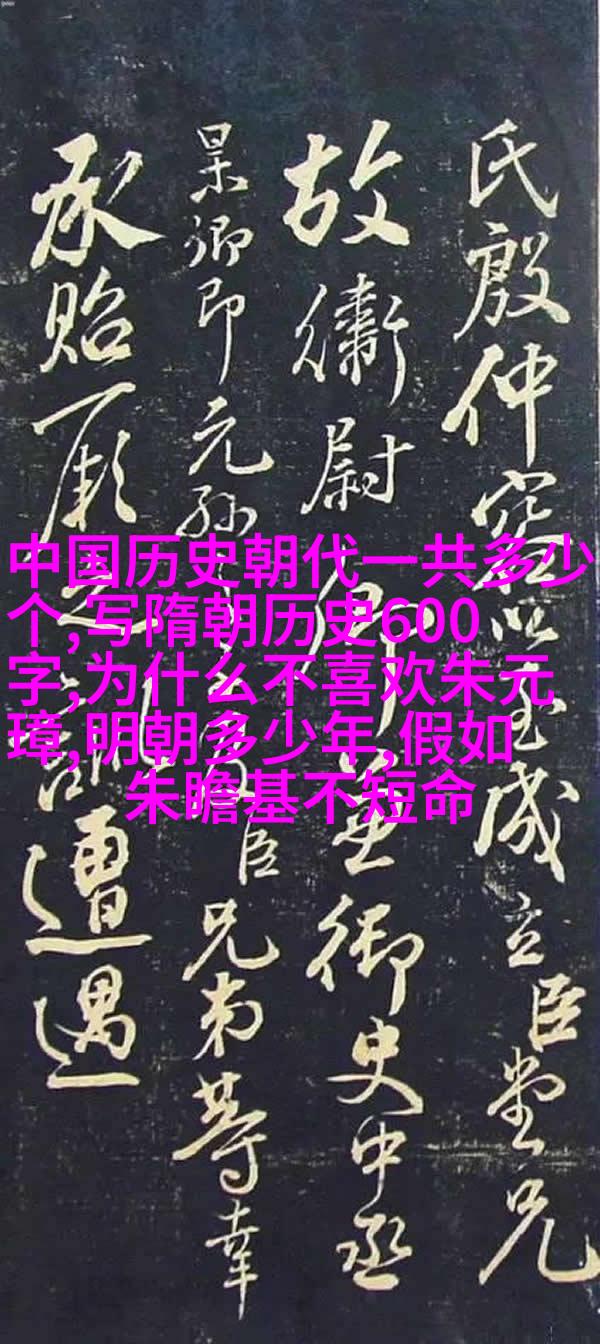 中国历史朝代一共多少
个,写隋朝历史600
字,为什么不喜欢朱元
璋,明朝多少年,假如
朱瞻基不短命
氏殷仲容以至成立臣堂兄
故衛尉卿兼御史中丞
杲卿即元孫臣兄弟等幸
承貽厥遭遇